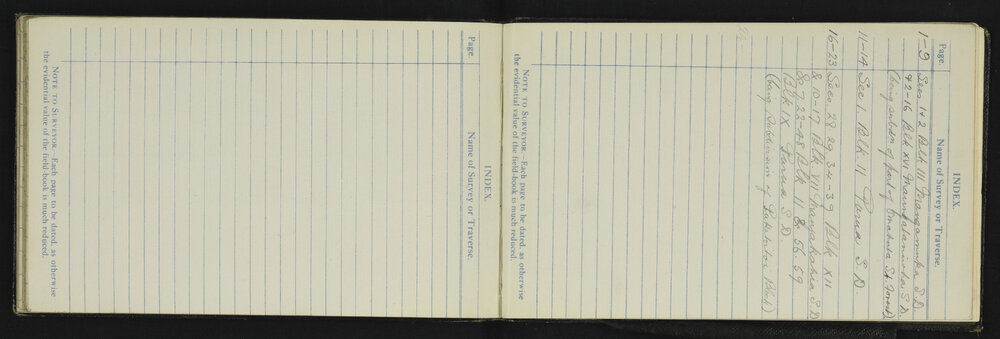 INDEX.
Page. Name of Survey or Traverse.
NOTE TO SURVEYOR.—Each page to be dated, as otherwise
the evidential value of the field-book is much reduced.
INDEX.
Page. Name of Survey or Traverse.
1-9 Secs 1&2 Blk III Mangamuka S.D.
&2-16 Blk XVI S.D.
(being subdn of part of Omahuta St Forest)
11-14 Sec 1. Blk. 11 Parua S.D.
16-23 Secs 28 29 34-39 Blk XII
& 10-17 Blk VII Mangakahia S.D
& 7 22-48 Blk 11 & 56.59
Blk IX Purua S.D
(being Subdivision of Block)
NOTE TO SURVEYOR.—Each page to be dated, as otherwise
the evidential value of the field-book is much reduced.